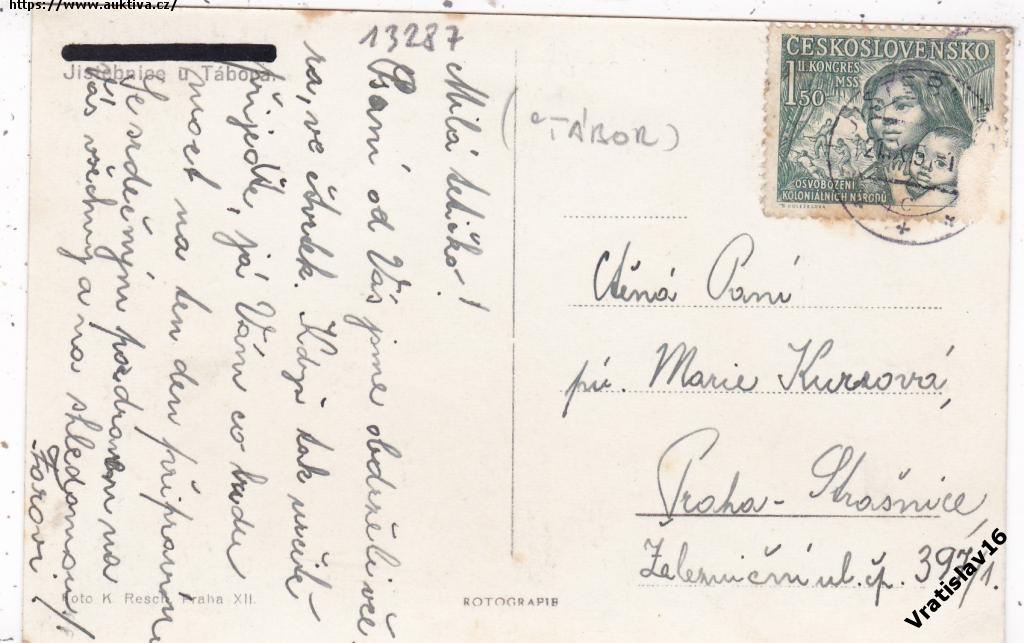 https://www.auktiva.cz/
13287
Jistebnice u Tábora.
Milá tetičko!
Psaní od Vás jsme obdrželi vče
ra, ve čtvrtek. Když tak určitě
přijeďte, já Vám co budu
moct na ten den připravím
Se srdečným pozdravem na
Vás všechny a na shledanou!
Foto K. Resch, Praha XII.
ROTOGRAPIE
(TÁBOR)
ČESKOSLOVENSKO
II. KONGRES
MSS
1 50
OSVOBOZENÍ
KOLONIÁLNÍCH NÁRODŮ
Ctěná Paní
pí. Marie Kurzová,
Praha - Strašnice
Železniční ul. čp. 397/1.
Vratislav16